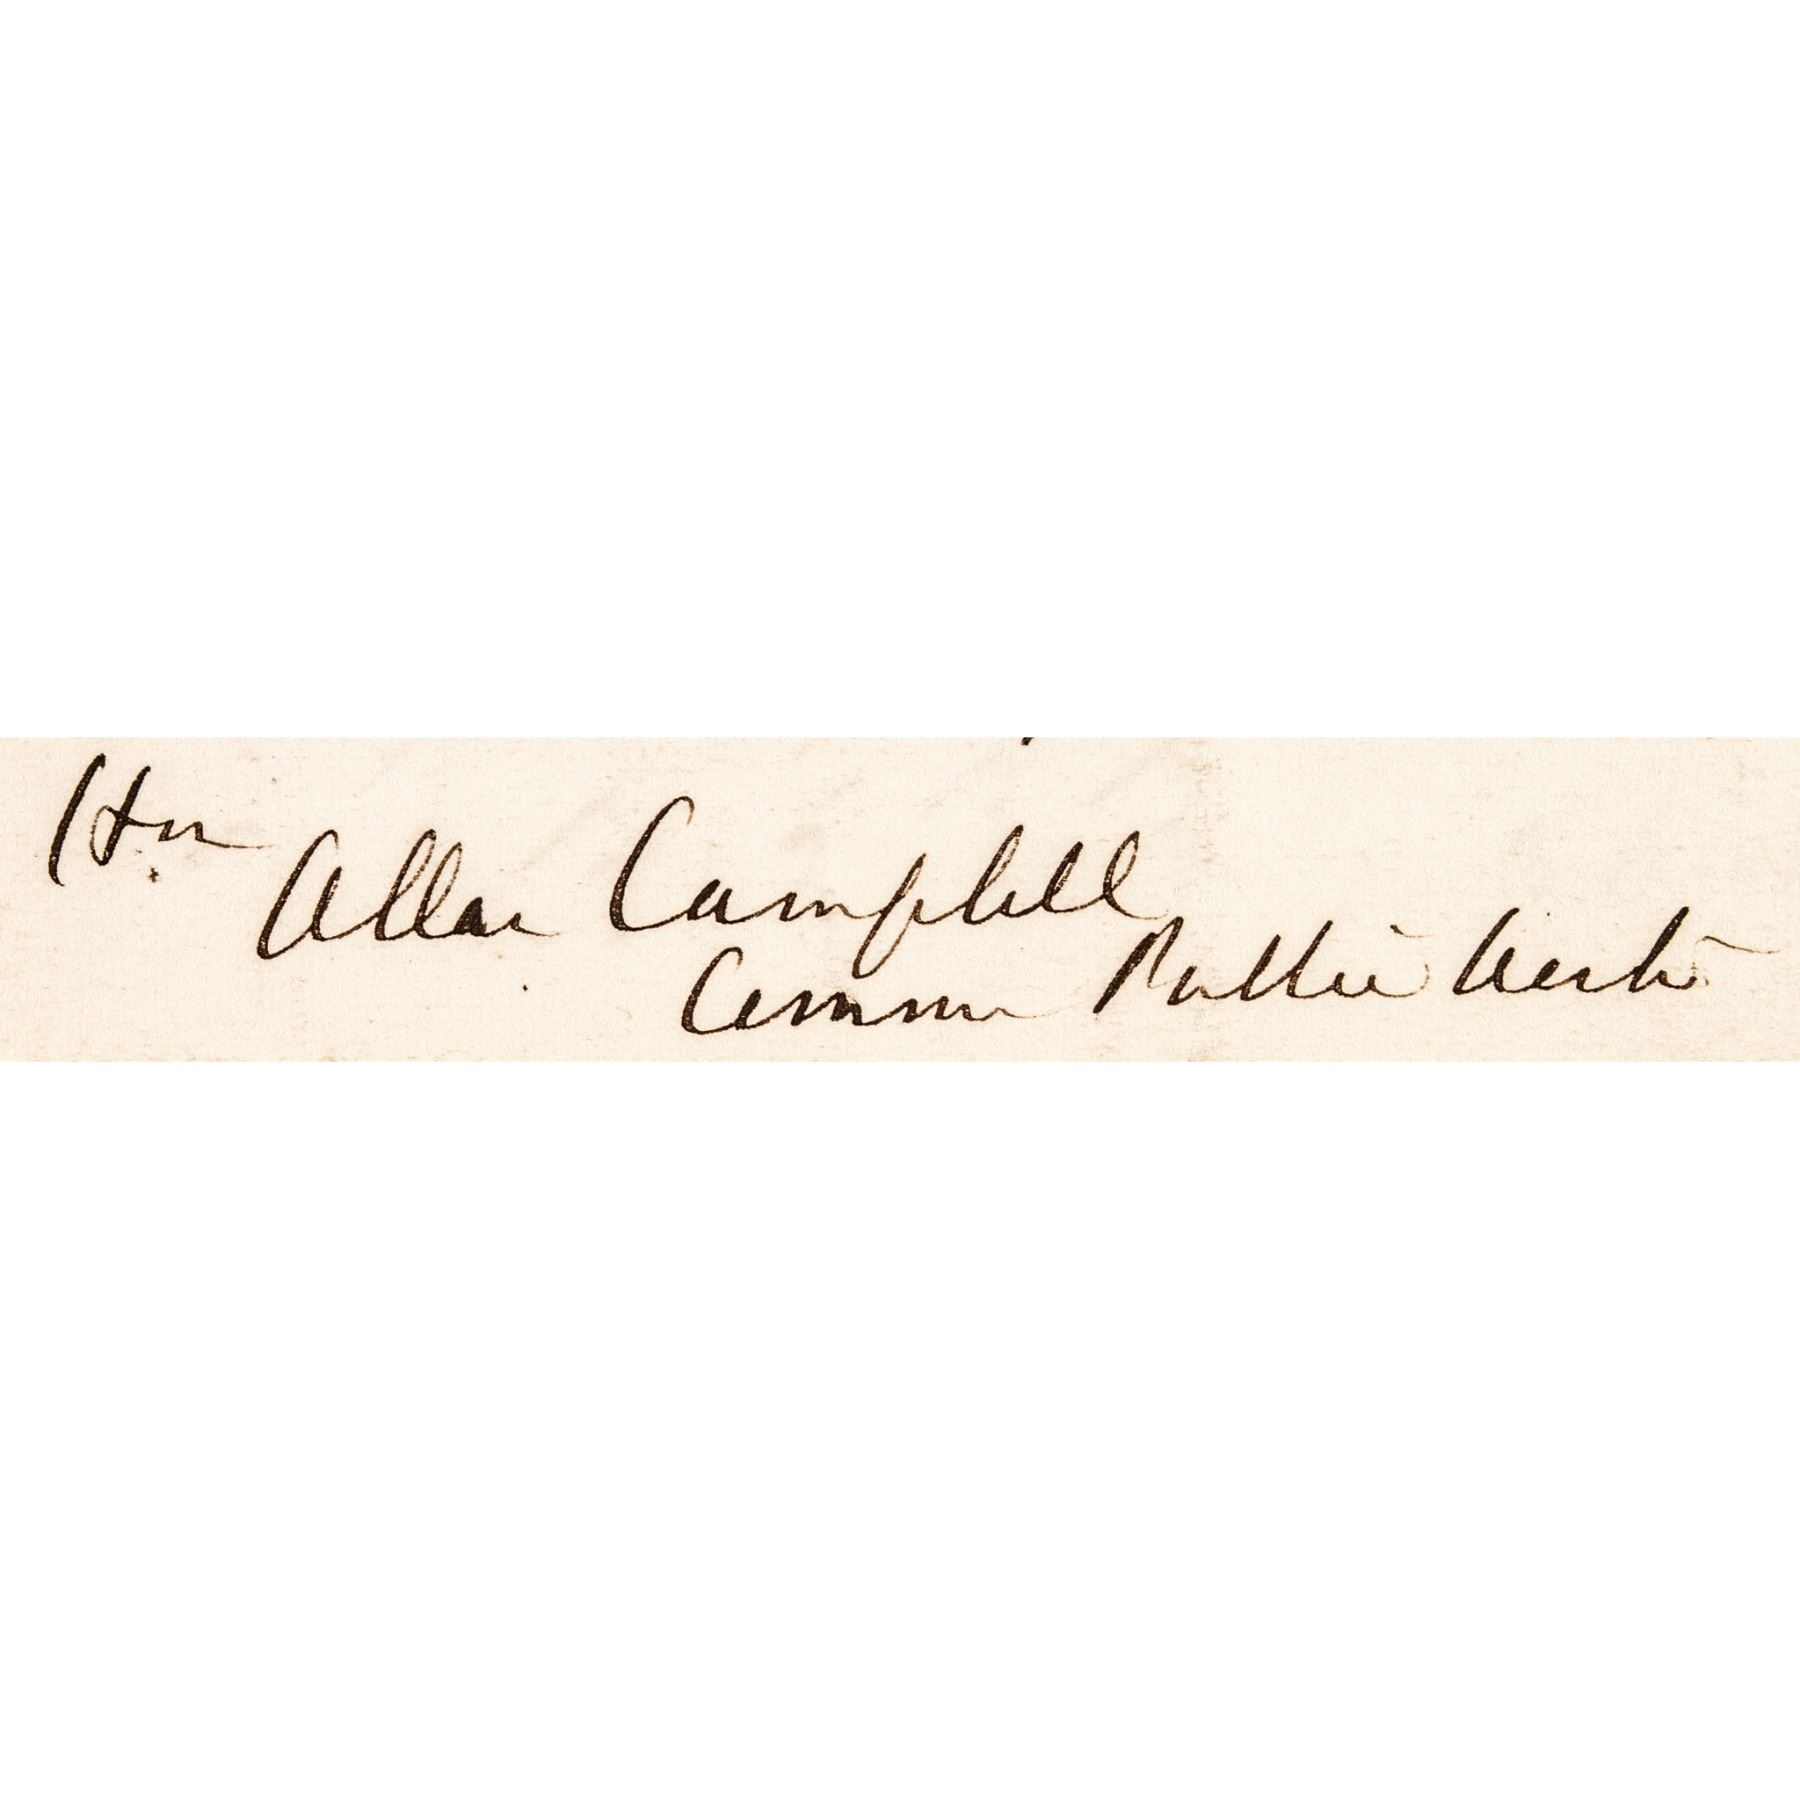 Hon
Allan Campbell
Commr Public Works